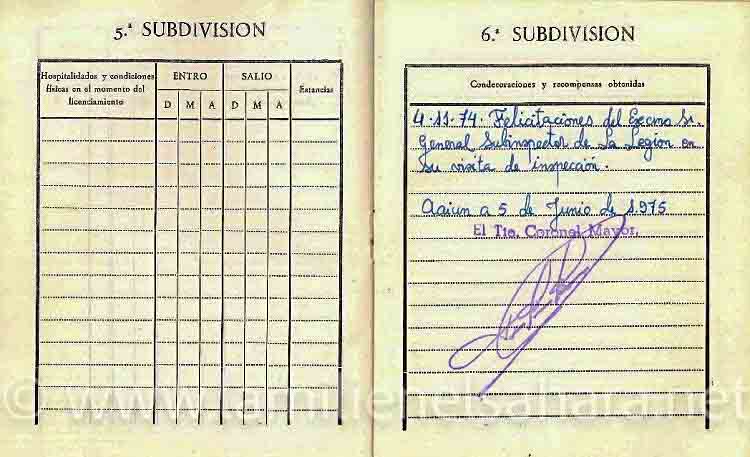 5.ª SUBDIVISION
Hospitalidades y condiciones
físicas en el momento del
licenciamiento
ENTRO
SALIO
Estancias
D M A D M A
6.ª SUBDIVISION
Condecoraciones y recompensas obtenidas
4-11-74. Felicitaciones del Excmo Sr.
General Subinspector de La Legion en
su visita de inspección.
Aaiun a 5 de Junio de 1.975
El Tte. Coronel Mayor,
© www.lamilienelsahara.net